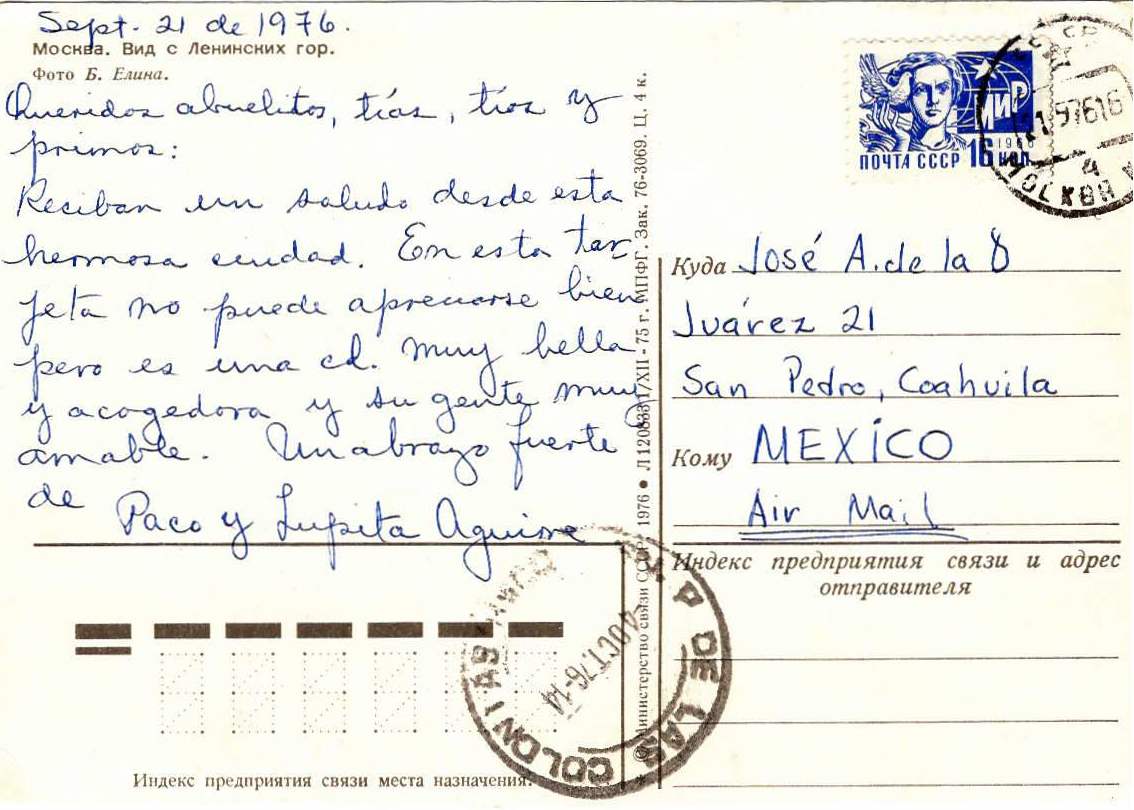 Sept. 21 de 1976.
Москва. Вид с Ленинских гор.
Фото Б. Елина.
Queridos abuelitos, tías, tíos y
primos:
Reciban un saludo desde esta
hermosa ciudad. En esta tar
jeta no puede apreciarse bien
pero es una cd. muy bella
y acogedora y su gente muy
amable. Un abrazo fuerte
de Paco y Lupita Aguirre
© Министерство связи СССР 1976 ● Л120833 1/XII - 75 г. МПФГ. Зак. 76-3069. Ц. 4 к.
МИР
1966
ПОЧТА СССР 16 КОП.
МОСКВА
4
Куда José A. de la O
Juárez 21
San Pedro, Coahuila
Кому MEXÍCO
Air Mail
Индекс предприятия связи и адрес
отправителя
P DE LAS COLONIAS
4 OCT.76-14
Индекс предприятия связи места назначения.